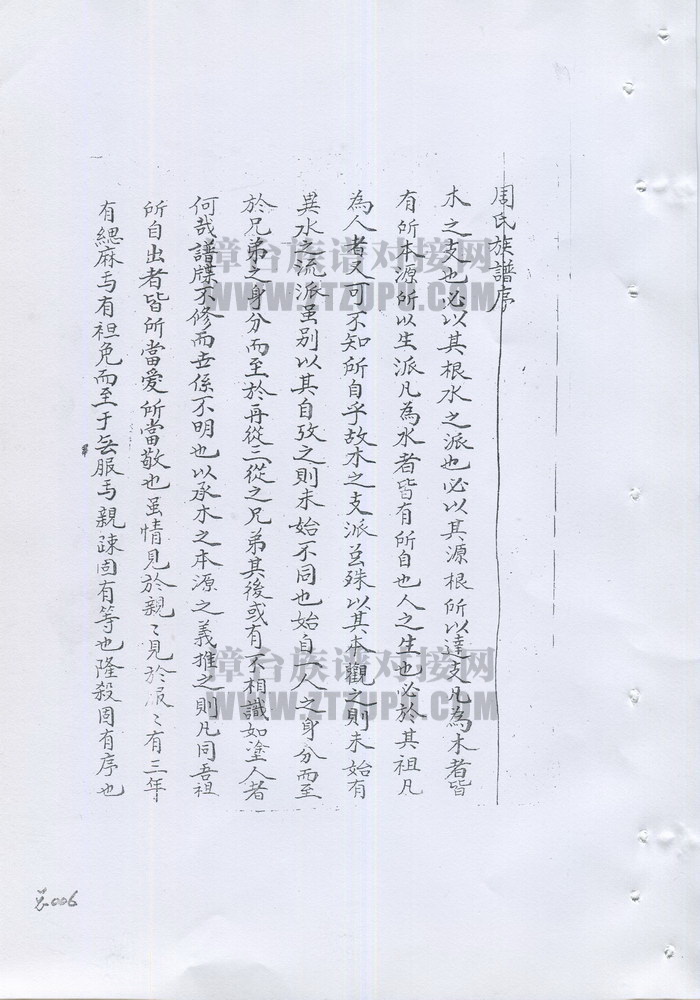 周氏族譜序
木之支也必以其根水之派也必以其源根所以達支凡為木者皆
有所本源所以生派凡為水者皆有所自也人之生也必於其祖凡
為人者又可不知所自乎故木之支派虽殊以其本觀之則未始有
異水之流派虽别以其自攷之則未始不同也始自一人之身分而至
於兄弟之身分而至於再從三從之兄弟其後或有不相識如塗人者
何哉譜牒不修而世係不明也以承木之本源之義推之則凡同吾祖
所自出者皆所當愛所當敬也虽情見於親〻見於服〻有三年
有緦麻焉有袒免而至于無服焉親疎固有等也隆殺固有序也
漳台族谱对接网
WWW.ZTZUPU.COM
漳台族谱对接网
WWW.ZTZUPU.COM
006